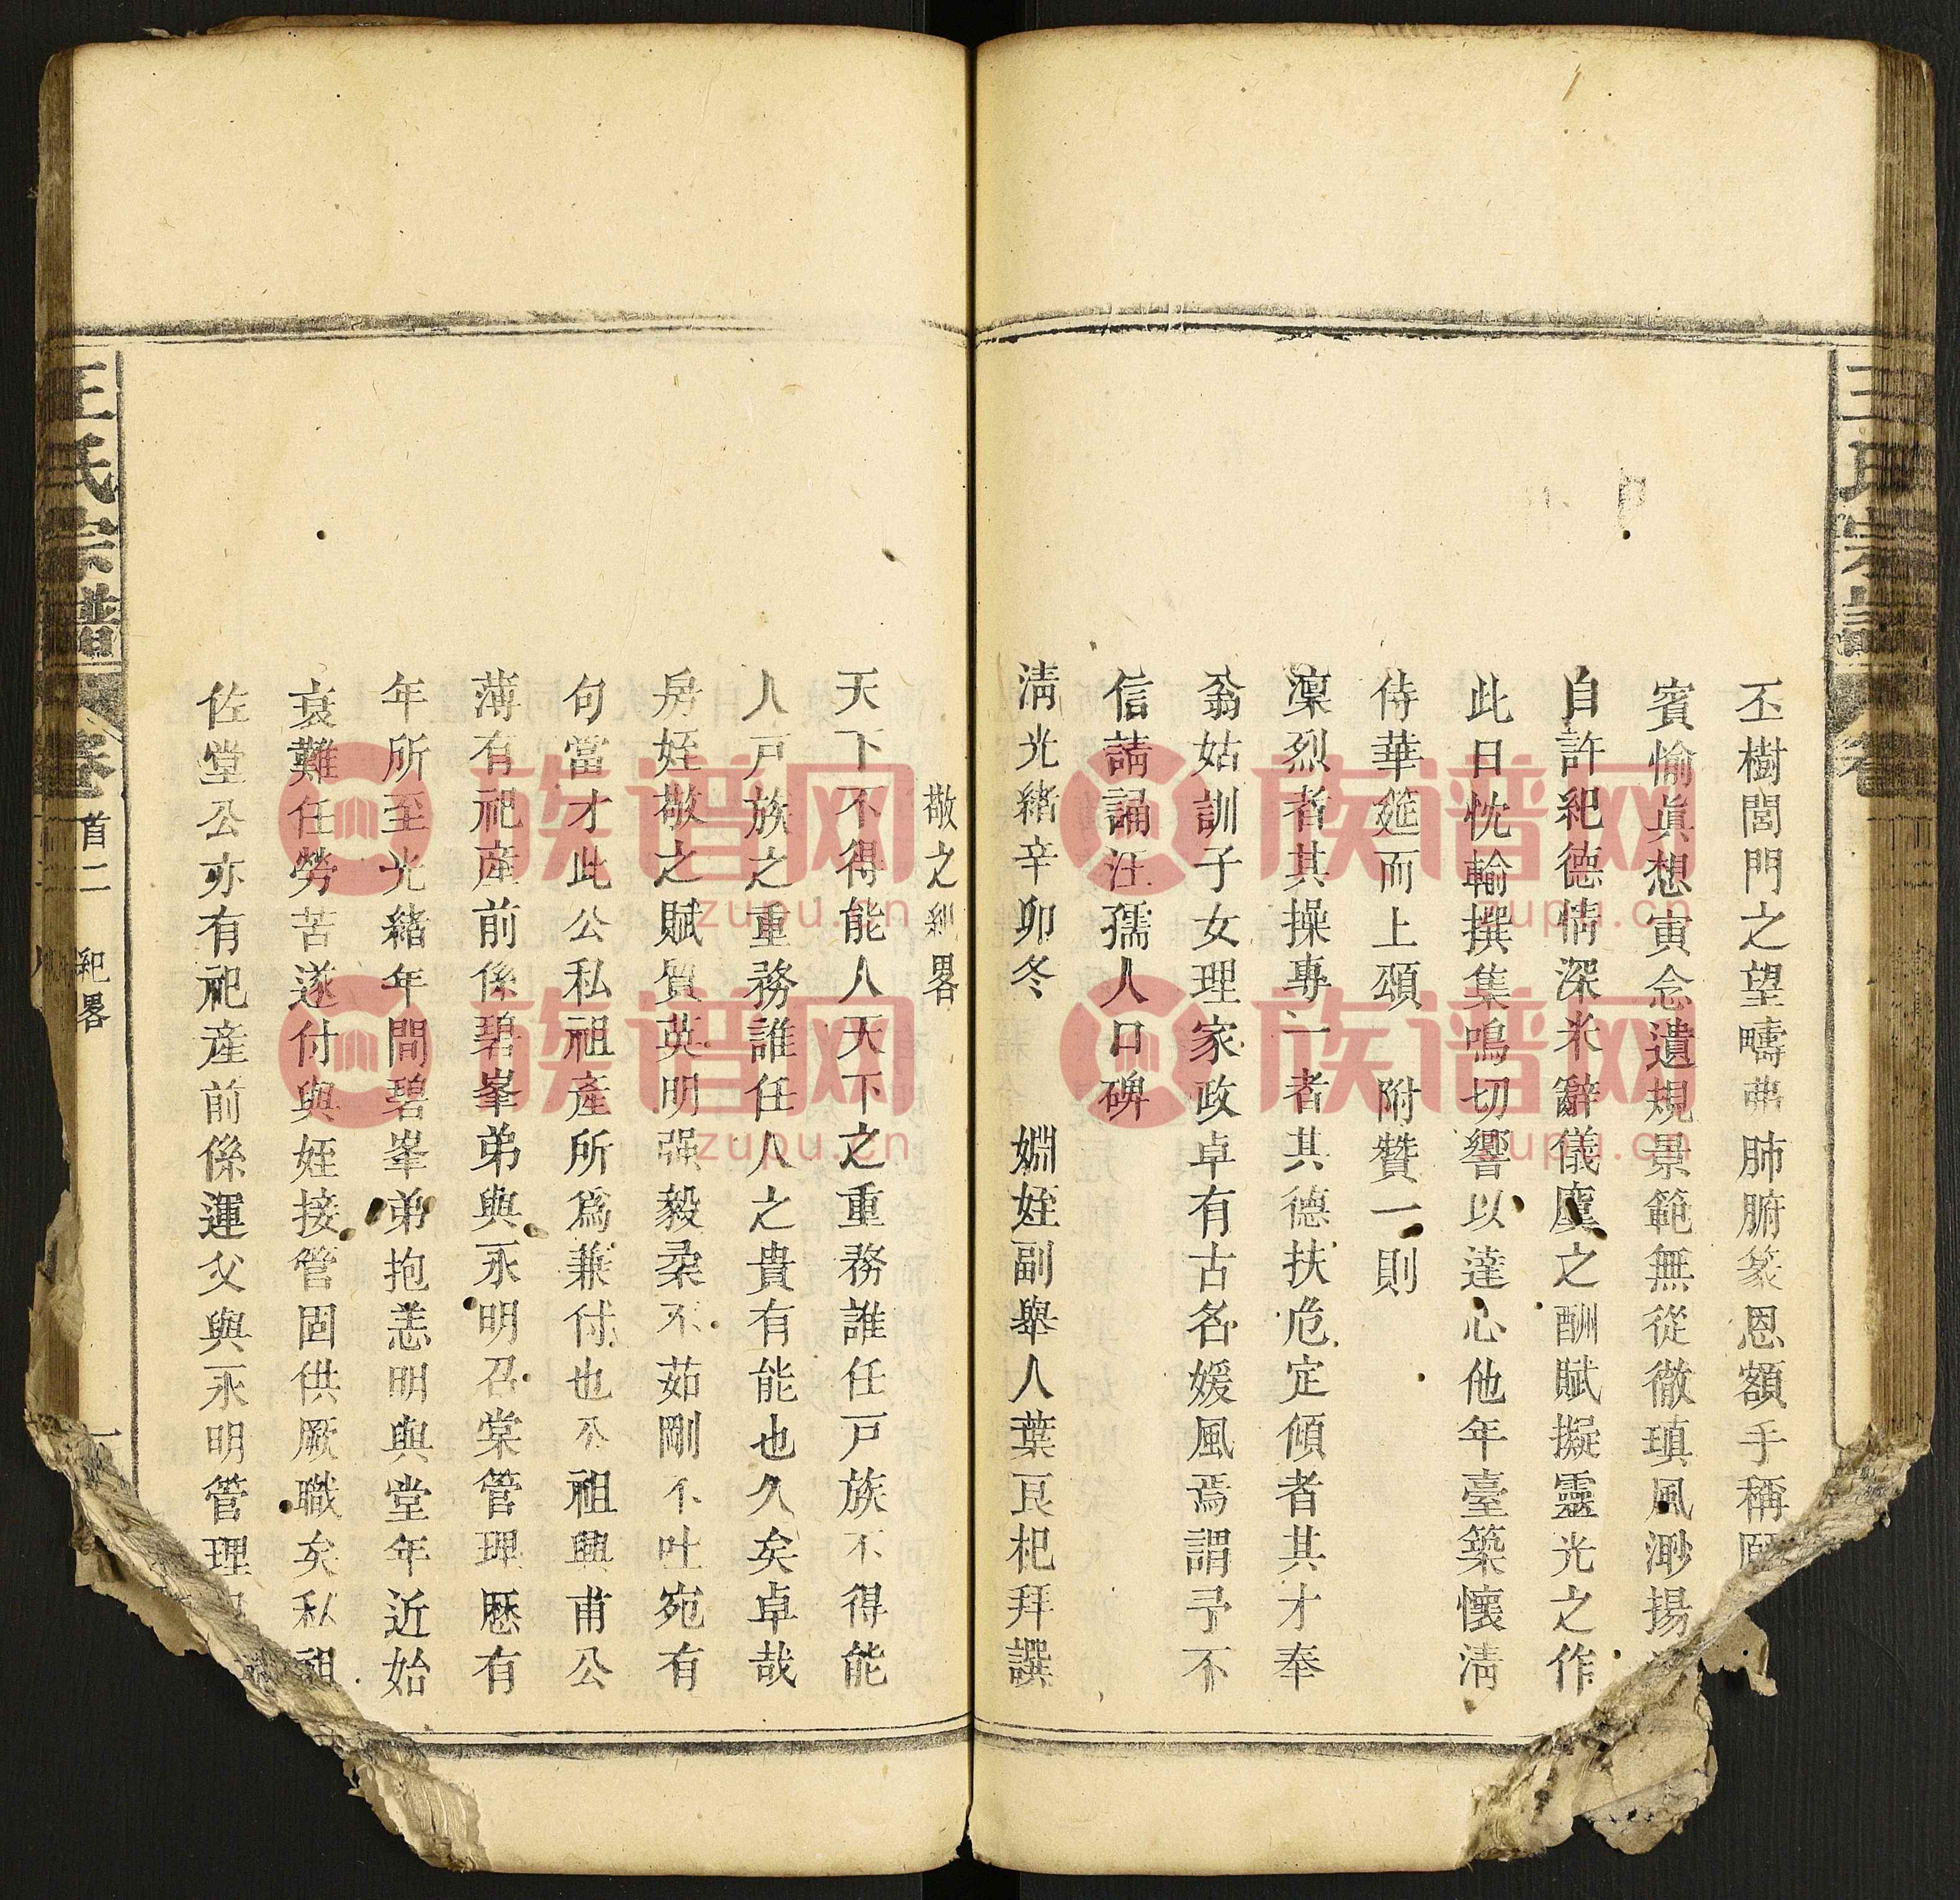 王氏宗譜
丕樹閭門之望疇弗肺腑篆恩額手稱
賓愉眞想寅念遺規景範無從徹瑱風渺揚
自許紀德情深米辭儀廩之酬賦擬靈光之作
此日忱輸撰集鳴切響以達心他年臺築懷淸
侍華筵而上頌 附贊一則
凜烈者其操專一者其德扶危定傾者其才奉
翁姑訓子女理家政卓有古名媛風焉謂予不
信請誦汪孺人口碑
淸光緖辛卯冬 婣姪副舉人葉艮杞拜譔
敬之紀畧
天下不得能人天下之重務誰任戸族不得能
人戸族之重務誰任人之貴有能也久矣卓哉
房姪敬之賦質英明强毅柔不茹剛不吐宛有
句當才此公私祖產所爲兼付也公祖興甫公
薄有祀產前係碧峯弟與永明召棠管理歷有
年所至光緖年間碧峯弟抱恙明與堂年近始
衰難任勞苦遂付與姪接管固供厥職矣私祖
佐堂公亦有祀產前係運父與永明管理
王氏宗譜 卷首二 紀畧 一
族谱网
zupu.cn
族谱网
zupu.cn
族谱网
zupu.cn
族谱网
zupu.cn